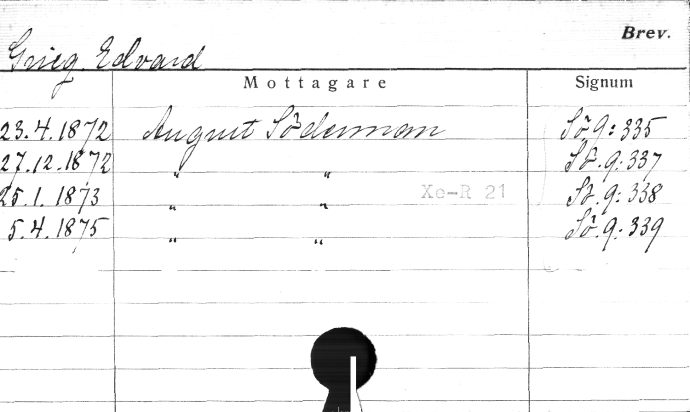 Brev.
Grieg, Edvard
Mottagare Signum
23.4.1872 August Söderman Sö.9:335
27.12.1872 " " Sö.9:337
25.1.1873 " " Xe-R 21 Sö.9:338
5.4.1875 " " Sö.9:339